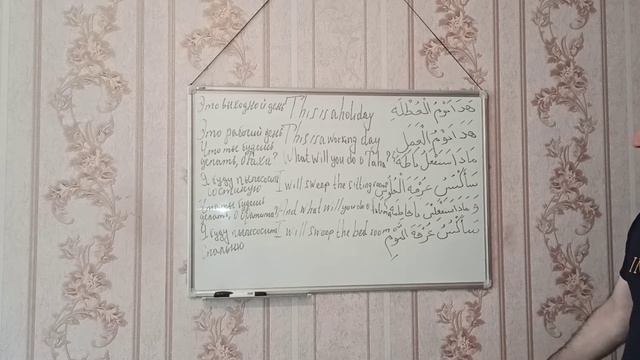 Это выходной день This is a holiday هَذَا يَوْمُ الْعُطْلَةِ
Это рабочий день This is a working day هَذَا يَوْمُ الْعَمَلِ
Что ты будешь
делать, о Таха? What will you do o Taha? مَاذَا سَتَفْعَلُ يَا طَهَ؟
Я буду пылесосить I will sweep the sitting room سَأَكْنُسُ غُرْفَةَ الْجُلُوسِ
гостиную
будешь
делать, о Фатима? And what will you do o وَ مَاذَا سَتَفْعَلِينَ يَا فَاطِمَةُ
Я буду пылесосить I will sweep the bed room سَأَكْنُسُ غُرْفَةَ النَّوْمِ
спальню